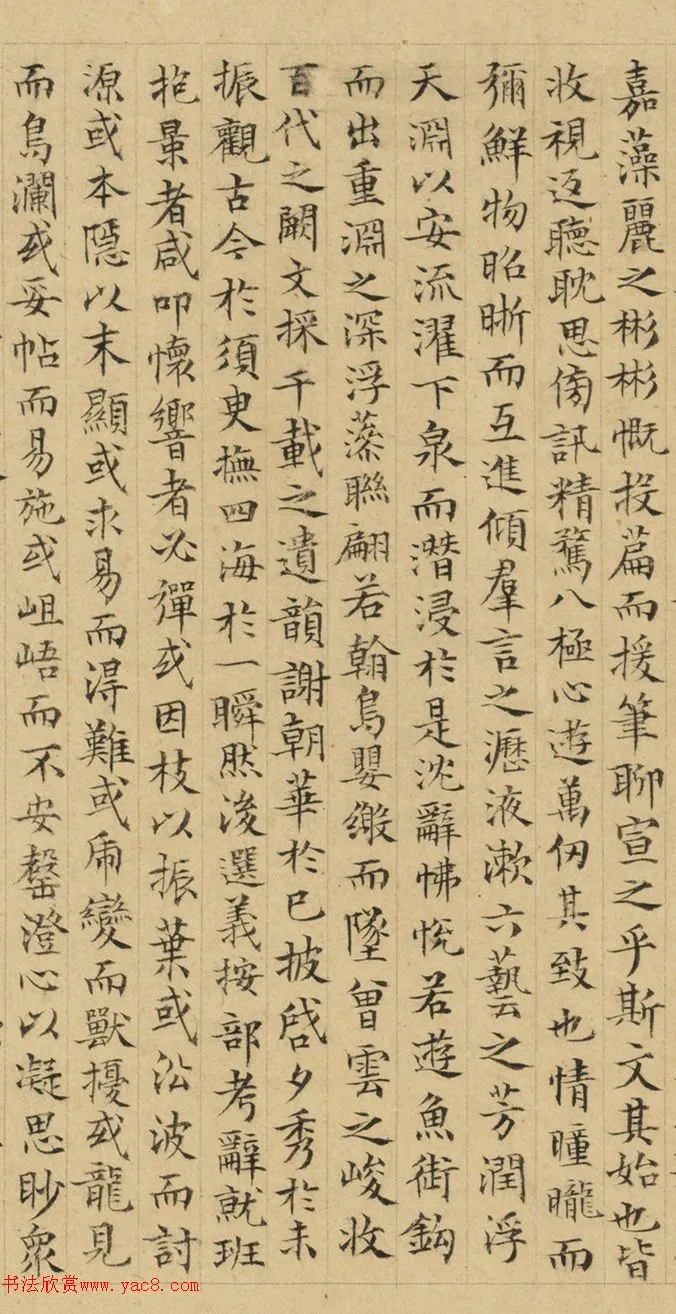 嘉藻麗之彬彬慨投篇而援筆聊宣之乎斯文其始也皆
收視返聽耽思傍訊精騖八極心遊萬仞其致也情曈曨而
彌鮮物昭晣而互進傾羣言之瀝液漱六藝之芳潤浮
天淵以安流濯下泉而潛浸於是沈辭怫悅若遊魚銜鈎
而出重淵之深浮藻聯翩若翰鳥嬰繳而墜曾雲之峻收
百代之闕文採千載之遺韻謝朝華於已披啓夕秀於未
振觀古今於須臾撫四海於一瞬然後選義按部考辭就班
抱景者咸叩懷響者必彈或因枝以振葉或沿波而討
源或本隱以末顯或求易而得難或虎變而獸擾或龍見
而鳥瀾或妥帖而易施或岨峿而不安罄澄心以凝思眇衆
书法欣赏www.yac8.com